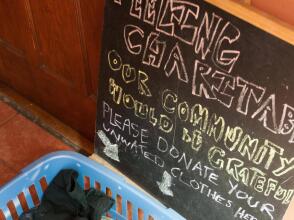 FEELING
CHARITAB
OUR COMMUNITY
WOULD BE GRATEFUL
PLEASE DONATE YOUR
UNWATED CLOTHES HERE